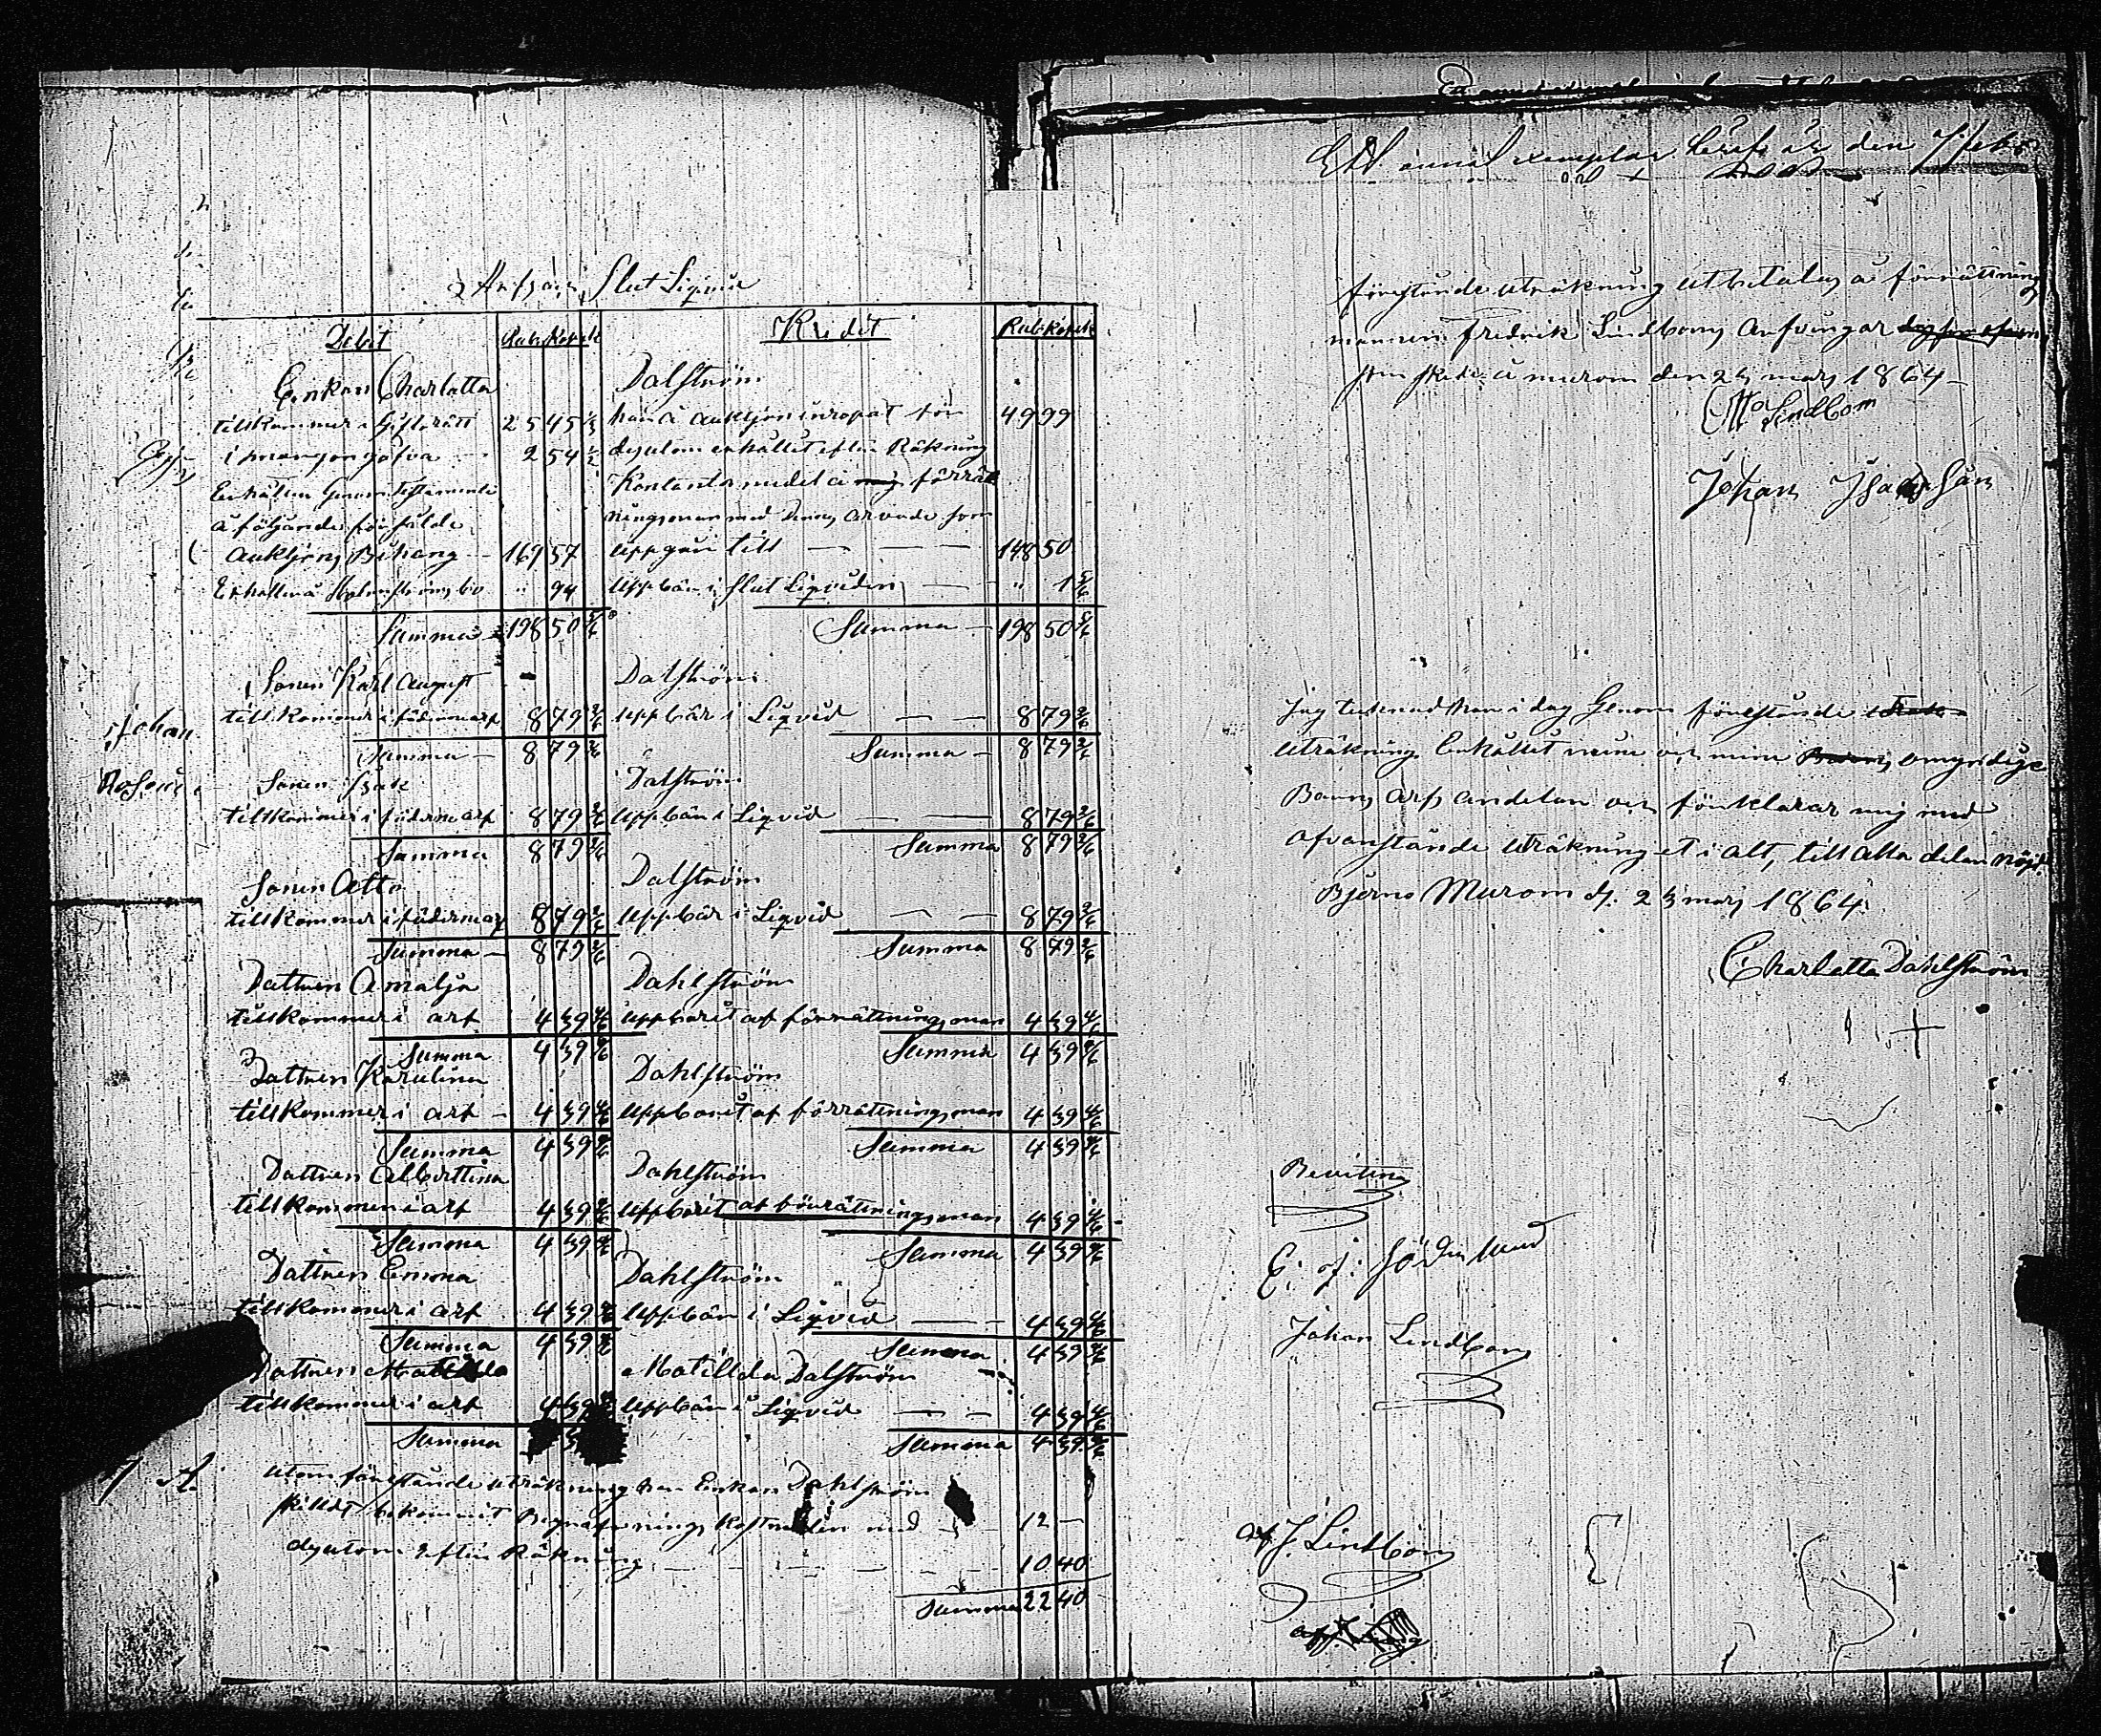 Arfs Slut Liqvid
Debit Rub. Kopek Kredit Rub. Kopek
Enkan Charlotta Dalström
tillkommer i Giftorätt 25 45 1/3 har å auktjon inropat för 49 99
i morgongåfva 2 54 1/2 dessutom erhållit efter Räkning
Erhåller Genom Testamente Kontanta medel å förrätt
å följande förfalde ningsman med Dennes arvode som
Auktjons Bihang 169 57 uppgår till 148 50
Erhåller å bo " 94 uppbär i Slut Liqviden " 1 5/6
Summa 198 50 5/6 Summa 198 50 5/6
Sonen Karl August Dalström
tillkommer i fädernearf 8 79 2/6 uppbär i Liqvid 8 79 2/6
Summa 8 79 2/6 Summa 8 79 2/6
Sonen Isak Dalström
tillkommer i fädernearf 8 79 2/6 uppbär i Liqvid 8 79 2/6
Summa 8 79 2/6 Summa 8 79 2/6
Sonen Otto Dalström
tillkommer i fädernearf 8 79 2/6 uppbär i Liqvid 8 79 2/6
Summa 8 79 2/6 Summa 8 79 2/6
Dattren Amalja Dahlström
tillkommer i arf 4 39 4/6 uppburit af förrättningsman 4 39 4/6
Summa 4 39 4/6 Summa 4 39 4/6
Dattren Karulina Dahlström
tillkommer i arf 4 39 4/6 uppburit af förrättningsman 4 39 4/6
Summa 4 39 4/6 Summa 4 39 4/6
Dattren Albertina Dahlström
tillkommer i arf 4 39 4/6 uppburit af förrättningsman 4 39 4/6
Summa 4 39 4/6 Summa 4 39 4/6
Dattren Emma Dahlström
tillkommer i arf 4 39 4/6 uppbär i Liqvid 4 39 4/6
Summa 4 39 4/6 Summa 4 39 4/6
Dattren Matilda Matillda Dalström
tillkommer i arf 4 39 uppbär i Liqvid 4 39 4/6
Summa Summa 4 39 4/6
utom förestående uträkning har Enkan Dahlström
skilldt bekommit Begrafnings Kostnaden med 12 —
dessutom efter Räkning 10 40
Summa 22 40
Johan
Ett annat exemplar den 7 febr
förestående uträkning utbetalas af förrättnings
mannen fredrik Lindborg Arfvingar
som skedde å murom den 23 mars 1864
Otto Lindbom
Johan Isacksson
Jag har i dag Genom förestående
uträkning Erhållit mina och mina omyndige
Barns arfs andelar och förklarar mig med
ofvanstående uträkning et i alt, till alla delar nöjd.
Bjerno Murom d. 23 mars 1864
Charlotta Dahlström
Bevitna
E: J: Söderlund
Johan Lindborg
af J. Lindborg